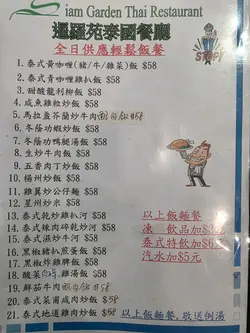 Siam Garden Thai Restaurant
暹羅苑泰國餐廳
全日供應輕鬆飯餐
STOP!
1. 泰式黃咖喱(豬/牛/雞菜)飯 $58
2. 泰式青咖喱雞扒飯 $58
3. 甜酸龍利柳飯 $58
4. 咸魚雞粒炒飯 $58
5. 馬拉盞芥蘭炒牛肉 $58
6. 冬蔭功蝦炒飯 $58
7. 冬蔭功鴨腿湯飯 $58
8. 生炒牛肉飯 $58
9. 五香肉丁炒飯 $58
10. 楊州炒飯 $58
11. 雞翼炒公仔麵 $58
12. 星州炒米 $58
13. 泰式乾炒雞扒河 $58
14. 泰式辣肉碎乾炒河 $58
15. 泰式濕炒牛河 $58
16. 黑椒豬扒煎蛋飯 $58
17. 黑椒炸雞脾飯 $58
18. 酸菜雞湯飯 $58
19. 鮮茄牛肉 $58
20. 泰式菜甫咸肉炒飯 $58
21. 泰式地道雞肉炒飯 $58
以上飯麵餐
凍 飲品加$3元
泰式特飲加$6元
汽水加$5元
以上飯麵餐, 敬送例湯